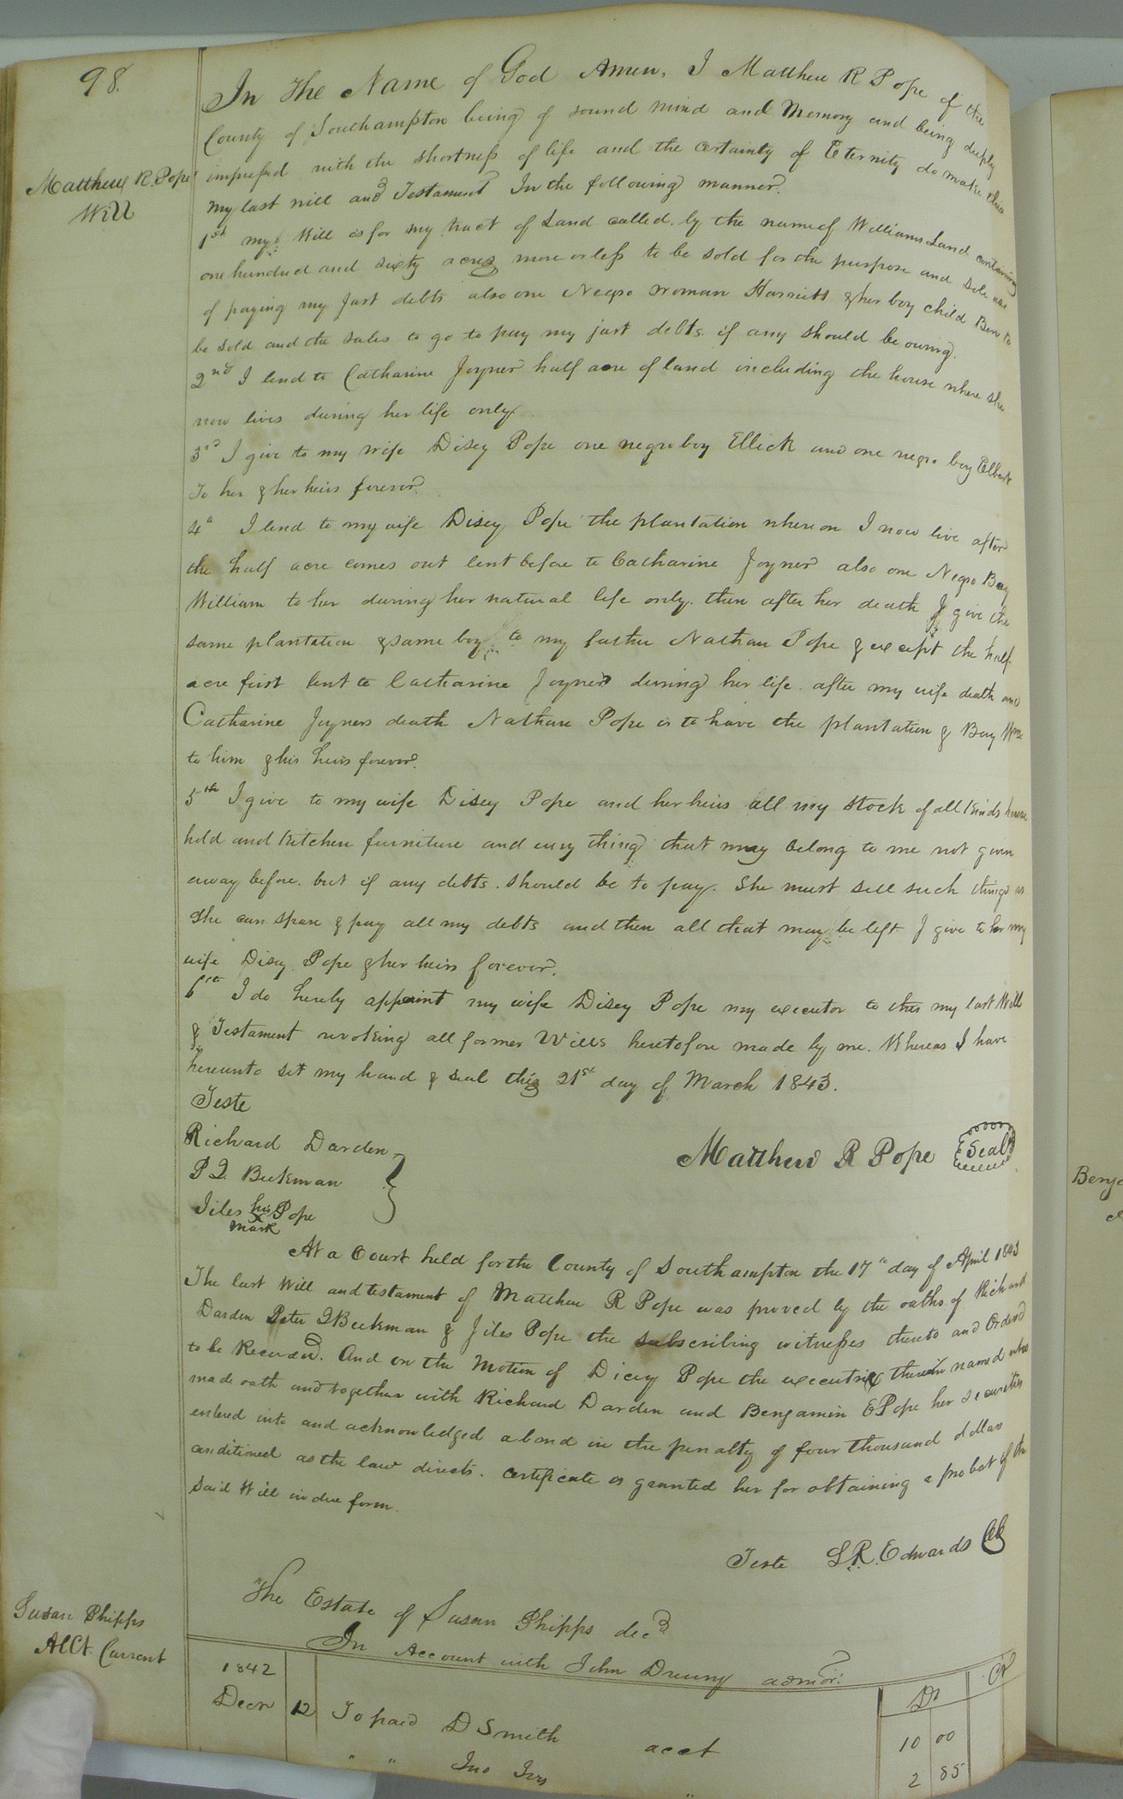 98.
Matthew R. Pope
Will
In The Name of God Amen, I Matthew R Pope of the
County of Southampton being of sound mind and Memory and being deeply
impressed with the shortness of life and the certainty of Eternity do make this
my last will and Testament In the following manner.
1st my Will is for my tract of Land called by the name of Williams Land containing
one hundred and sixty acres more or less to be sold for the purpose and sole use
of paying my just debts also one Negro woman Harriett & her boy child Ben to
be sold and the sales to go to pay my just debts if any should be owing.
2nd I lend to Catharine Joyner half acre of land including the house where she
now lives during her life only.
3rd I give to my wife Disey Pope one negro boy Ellick and one negro boy Elbert
To her & her heirs forever.
4th I lend to my wife Disey Pope the plantation whereon I now live after
the half acre comes out lent before to Catharine Joyner also one Negro Boy
William to her during her natural life only. then after her death I give the
same plantation & same boy to my father Nathan Pope & except the half
acre first lent to Catharine Joyner during her life. after my wife death and
Catharine Joyners death Nathan Pope is to have the plantation & Boy Wm
to him & his heirs forever.
5th I give to my wife Disey Pope and her heirs all my stock of all kinds house
hold and kitchen furniture and every thing that may belong to me not given
away before. but if any debts. should be to pay. She must sell such things as
She can spare & pay all my debts and then all that may be left I give to her my
wife Disey Pope & her heirs forever.
6th I do hereby appoint my wife Disey Pope my executor to this my last Will
& Testament revoking all former Wills heretofore made by me. Whereas I have
hereunto set my hand & seal this 21st day of March 1843.
Teste
Richard Darden
P J. Beekman
Jiles his Pope
mark
Matthew R Pope Seal
At a Court held for the County of Southampton the 17th day of April 1843
The last Will and testament of Matthew R Pope was proved by the oaths of Richard
Darden Peter J Beekman & Jiles Pope the subscribing witnesses thereto and Ordered
to be Recorded. And on the Motion of Dicey Pope the executrix therein named who
made oath and together with Richard Darden and Benjamin E Pope her securities
entered into and acknowledged a bond in the penalty of four thousand dollars
conditioned as the law directs. Certificate is granted her for obtaining a probat of the
said Will in due form.
Teste L. R. Edwards Clk
Susan Phipps
A/Ct. Current
The Estate of Susan Phipps decd
In Account with John Drewry admor:
Dr Cr
1842
Decr 12 To paid D Smith acct 10 00
" " Jno Ivy " 2 85